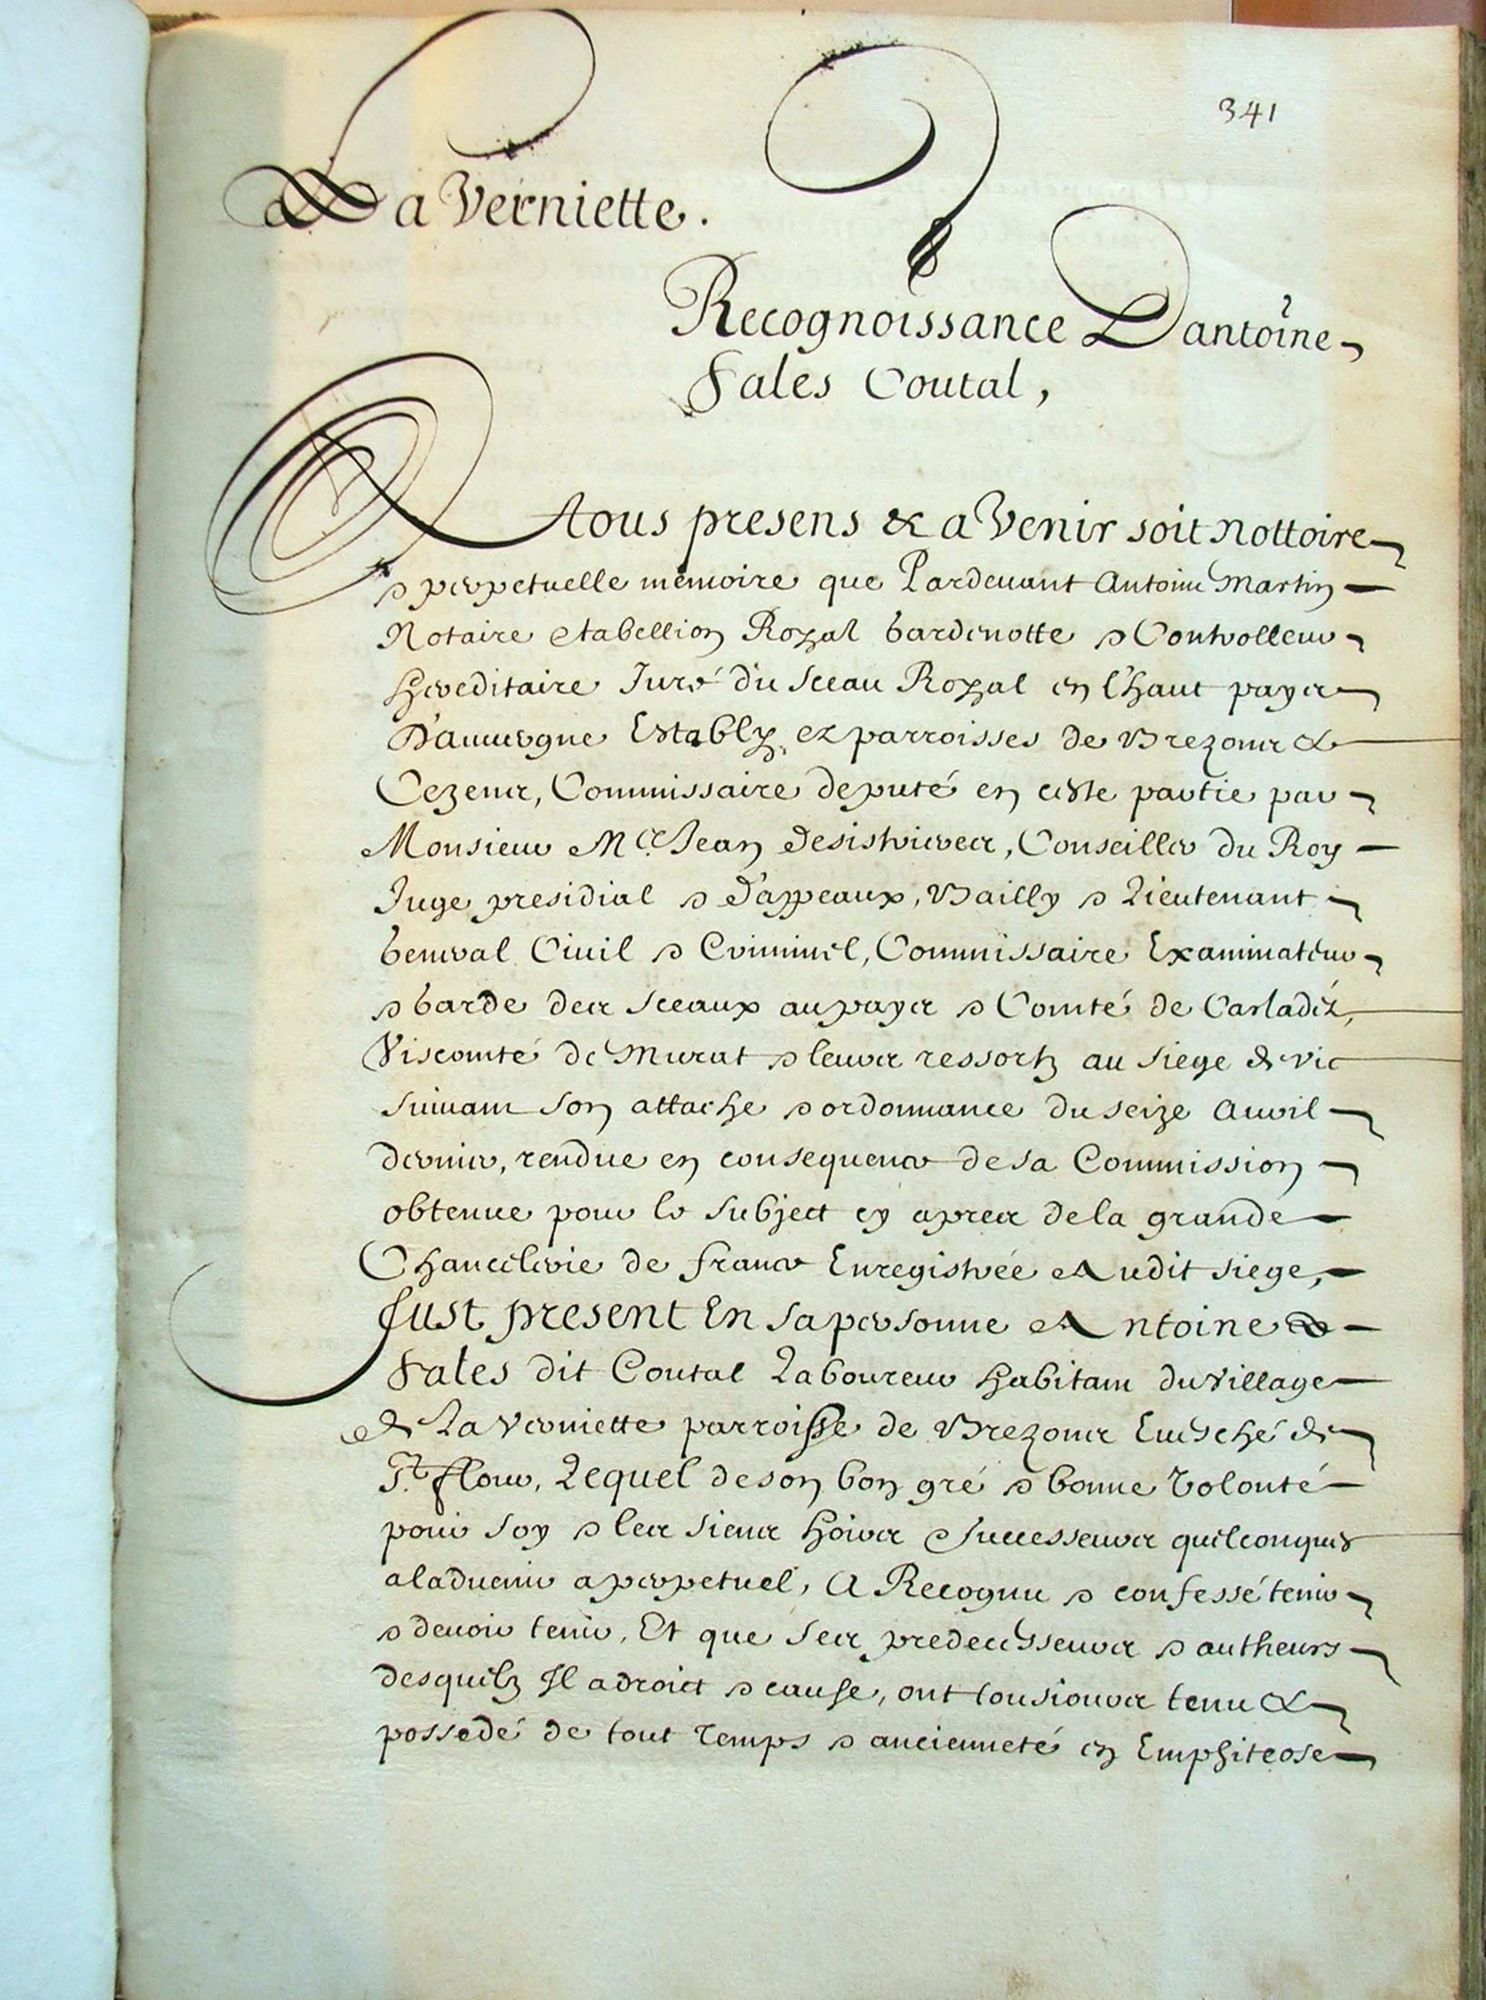 341
La Verniette.
Recognoissance Dantoine
Sales Coutal,
A tous presens & a Venir soit nottoire
& perpetuelle memoire que Pardevant Antoine Martin
Notaire & tabellion Royal Gardenotte & Controlleur
Hereditaire Juré du sceau Royal en l'haut payes
D'auuergne Estably ez parroisses de Brezons &
Cezens, Commissaire deputé en ceste partie par
Monsieur Me. Jean Desistrieres, Conseiller du Roy
Juge presidial & d'appeaux, Bailly & Lieutenant
General Civil & Criminel, Commissaire Examinateur
& Garde des sceaux au payes & Comté de Carladéz,
Viscomté de Murat & leurs ressortz au siege de vic
suiuant son attache & ordonnance du seize Auril
dernier, rendue en consequence de sa Commission
obtenue pour le subject cy apres de la grande
Chancelerie de france Enregistrée Audit siege,
fust present En sa personne Antoine
Sales dit Coutal Laboureur habitant du Village
de La Verniette parroisse de Brezons Euesché de
St. flour, Lequel de son bon gré & bonne Volonté
pour soy & les siens hoirs & successeurs quelconques
aladuenir a perpetuel, A Recognu & confessé tenir
& deuoir tenir, Et que ses predecesseurs & autheurs
desquelz Il a droict & cause, ont tousiours tenu &
possedé de tout Temps & ancienneté en Emphiteose